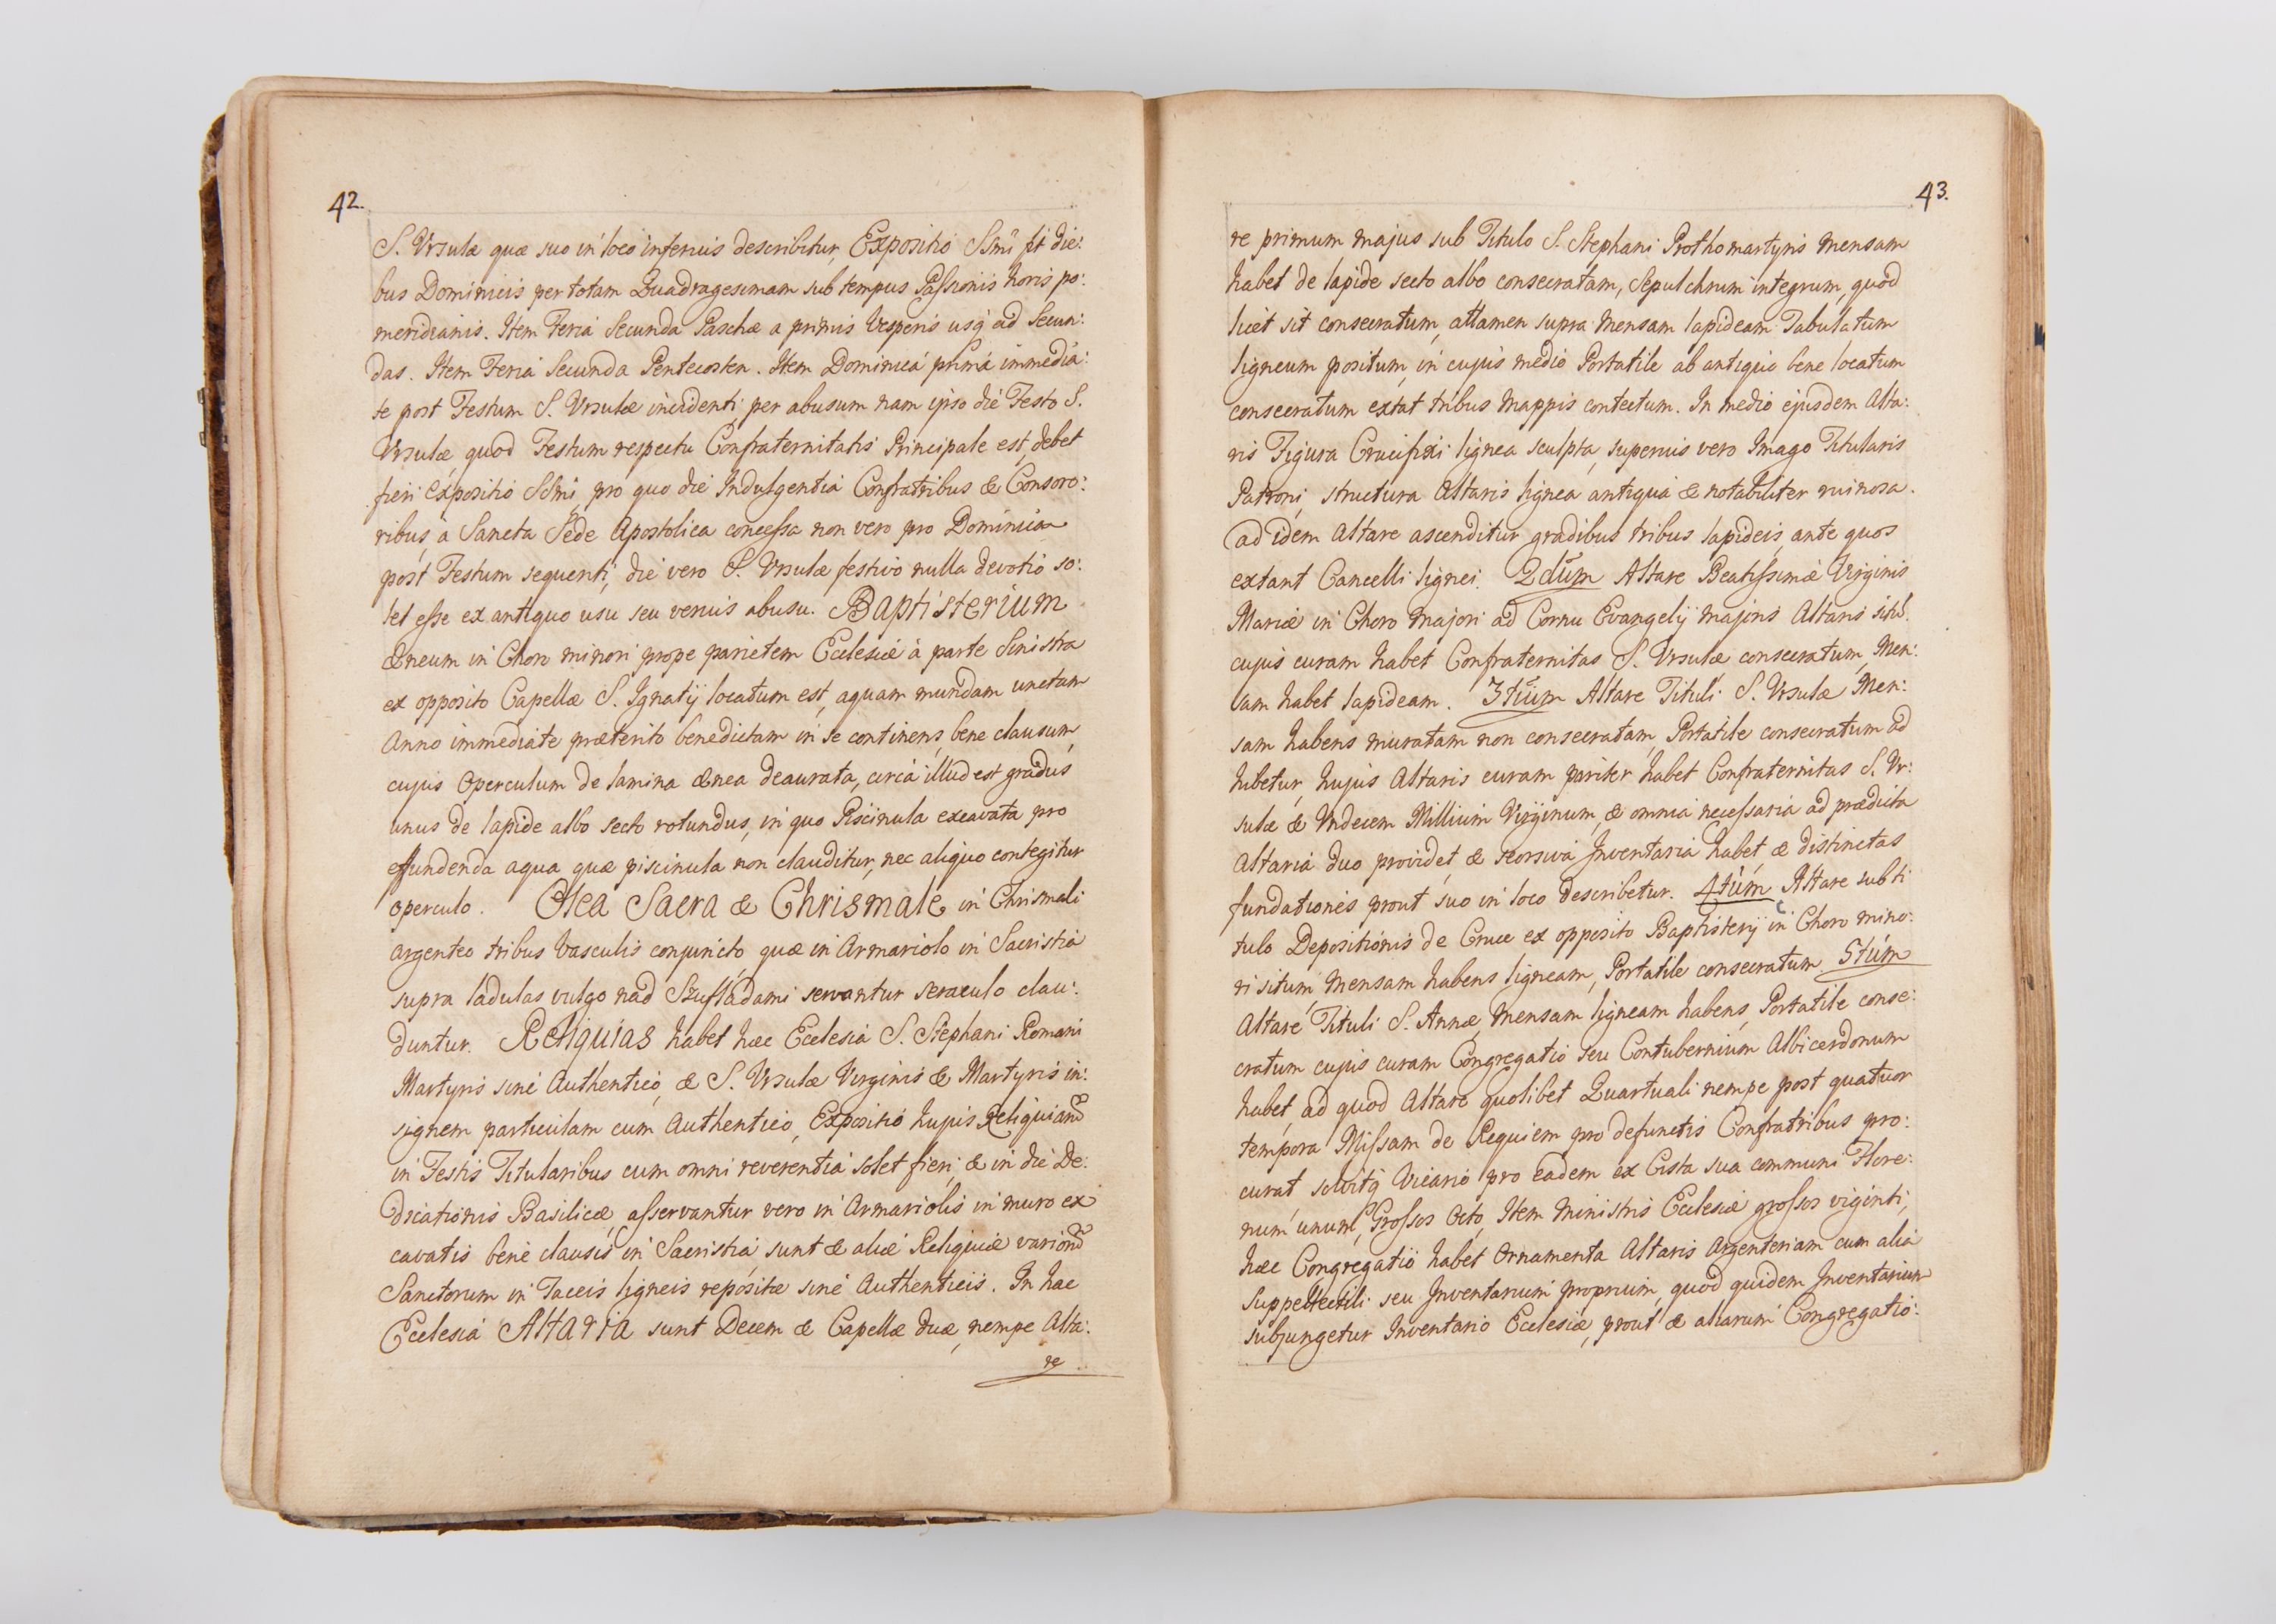 42.
S. Ursulæ quæ suo in loco inferius describitur, Expositio Ssmi fit die:
bus Dominicis per totam Quadragesimam sub tempus Passionis horis po:
meridianis. Item Feria Secunda Paschæ a primis Vesperis usq ad Secun:
das. Item Feria Secunda Pentecosten. Item Dominica prima immedia:
te post Festum S. Ursulæ incidenti per abusum nam ipso die Festo S.
Ursulæ, quod Festum respectu Confraternitatis Principale est, debet
fieri Expositio Ssmi, pro quo die Indulgentia Confratribus & Consoro:
ribus, a Sancta Sede Apostolica concessa non vero pro Dominica
post Festum sequenti, die vero S. Ursulæ festivo nulla devotio so:
let esse ex antiquo usu seu verius abusu. Baptisterium
æneum in Choro minori prope parietem Ecclesiæ à parte Sinistra
ex opposito Capellæ S. Ignatÿ locatum est, aquam mundam unctam
Anno immediate præterito benedictam in se continens, bene clausum,
cujus Operculum de lamina ænea deaurata, circa illud est gradus
unus de lapide albo secto rotundus, in quo Piscinula excavata pro
effundenda aqua quæ piscinula non clauditur, nec aliquo contegitur
operculo. Olea Sacra & Chrismale in Chrismali
argenteo tribus Vasculis conjuncto quæ in Armariolo in Sacristia
supra ladulas vulgo nad Szufladami servantur seraculo clau:
duntur. Reliquias habet hæc Ecclesia S. Stephani Romani
Martyris sine Authentico, & S. Ursulæ Virginis & Martyris in:
signem particulam cum Authentico, Expositio hujus Reliquiarum
in Festis Titularibus cum omni reverentia solet fieri, & in die De:
dicationis Basilicæ, asservantur vero in Armariolis in muro ex
cavatis bene clausis in Sacristia, sunt & aliæ Reliquiæ variorum
Sanctorum in Faceis ligneis repositæ sine Authenticis. In hac
Ecclesia Altaria sunt Decem & Capellæ duæ, nempe Alta:
re
43.
re primum majus sub Titulo S. Stephani Prothomartyris Mensam
habet de lapide secto albo consecratam, Sepulchrum integrum, quod
licet sit consecratum, attamen supra Mensam lapideam Tabulatum
ligneum positum, in cujus medio Portatile ab antiquo bene locatum
consecratum extat tribus Mappis contectum. In medio ejusdem Alta:
ris Figura Crucifixi lignea sculpta, superius vero Imago Titularis
Patroni, structura Altaris lignea antiqua & notabiliter ruinosa.
ad idem Altare ascenditur gradibus tribus lapideis, ante quos
extant Cancelli lignei. 2dum Altare Beatissimæ Virginis
Mariæ in Choro Majori ad Cornu Evangelÿ majoris Altaris situm
cujus curam habet Confraternitas S. Ursulæ consecratum, Men:
sam habet lapideam. 3tium Altare Tituli S. Ursulæ Men:
sam habens muratam non consecratam, Portatile consecratum ad
hibetur, hujus Altaris curam pariter habet Confraternitas S. Ur:
sulæ & Undecem Millium Virginum, & omnia necessaria ad prædicta
Altaria duo providet, & seorsiva Inventaria habet, & distinctas
fundationes prout suo in loco describetur. 4tum Altare sub ti
tulo Depositionis de Cruce ex opposito Baptisterÿ in Choro mino:
ri situm Mensam habens ligneam, Portatile consecratum 5tum
Altare Tituli S. Annæ, Mensam ligneam habens, Portatile conse:
cratum cujus curam Congregatio seu Contubernium Albicerdonum
habet, ad quod Altare quolibet Quartuali nempe post quatuor
tempora Missam de Requiem pro defunctis Confratribus pro:
curat solvitq Vicario pro eadem ex Cista sua communi Flore:
num unum, Grossos Octo, Item Ministris Ecclesiæ grossos viginti,
hæc Congregatio habet Ornamenta Altaris Argenteriam cum alia
Suppellectili seu Inventarium proprium, quod quidem Inventarium
subjungetur Inventario Ecclesiæ, prout & aliarum Congregatio: